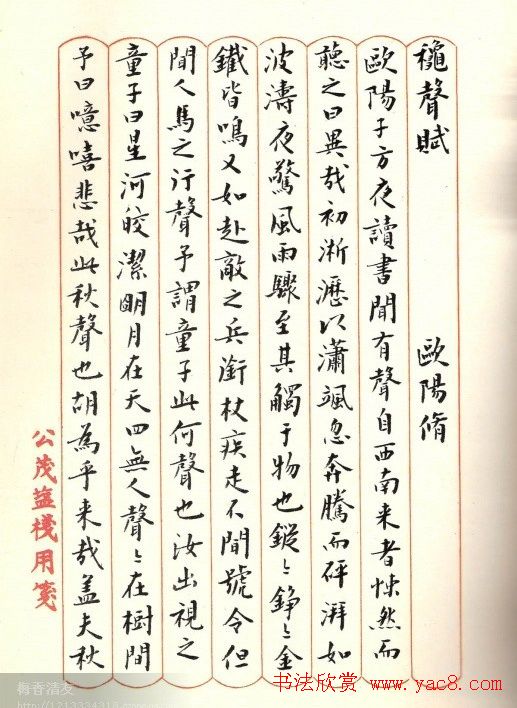 龝聲賦 歐陽脩
歐陽子方夜讀書聞有聲自西南来者悚然而
聽之曰異哉初淅瀝以瀟颯忽奔騰而砰湃如
波濤夜驚風雨驟至其觸于物也鏦〻錚〻金
鐵皆鳴又如赴敵之兵銜枚疾走不聞號令但
聞人馬之行聲予謂童子此何聲也汝出視之
童子曰星河皎潔明月在天四無人聲〻在樹間
予曰噫嘻悲哉此秋聲也胡為乎来哉盖夫秋
公茂盐棧用箋
梅香清友
书法欣赏 www.yac8.com